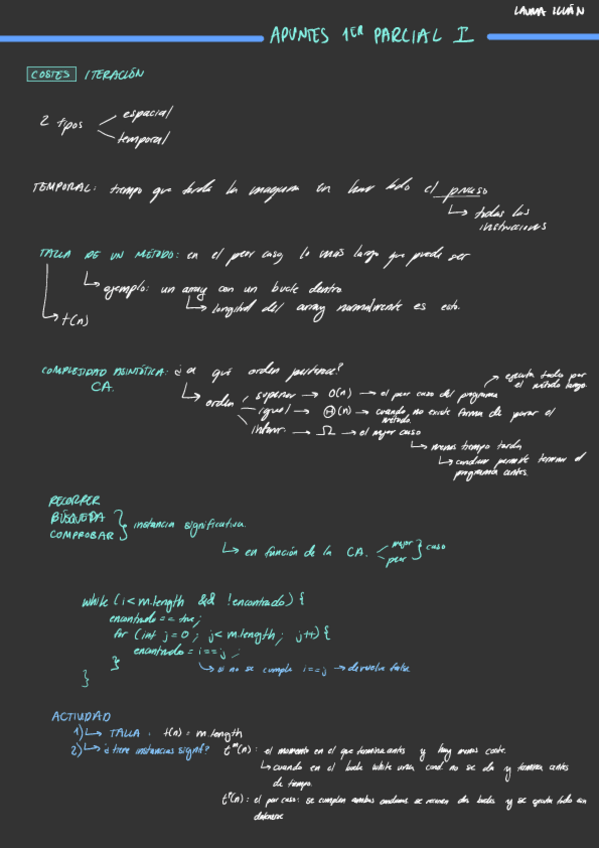 LAURA
APUNTES 1ER PARCIAL I
COSTES ITERACIÓN
2 tipos
espacial
temporal
TEMPORAL: tiempo que tarda la maquina en hacer todo el proceso
todas las
instrucciones
TALLA DE UN MÉTODO: en el peor caso, lo más largo que puede ser
ejemplo: un array con un bucle dentro
longitud del array normalmente es esto.
t(n)
COMPLEJIDAD ASINTÓTICA: ¿a qué orden pertenece?
CA.
ejecuta todo por
el método largo.
orden
superior → O(n) → el peor caso del programa
igual → Θ(n) → cuando no existe forma de parar el
método.
inferior → Ω → el mejor caso
menos tiempo tarda
permite terminar el
programa antes.
RECORRER
BÚSQUEDA
COMPROBAR
instancia significativa
en función de la CA.
mejor
peor
caso
while (i < m.length && !encontrado) {
encontrado == true;
for (int j = 0; j < m.length; j++) {
encontrado = i == j;
}
si no se cumple i==j → devuelve false
}
ACTIVIDAD
1) TALLA: t(n) = m.length
2) ¿tiene instancias signif?
tᵐ(n): el momento en el que termina antes y hay menos coste.
cuando en el bucle while una cond no se da y termina antes
de tiempo.
tᵖ(n): el peor caso: se cumplen ambas se recorren dos bucles y se ejecuta todo sin
detenerse